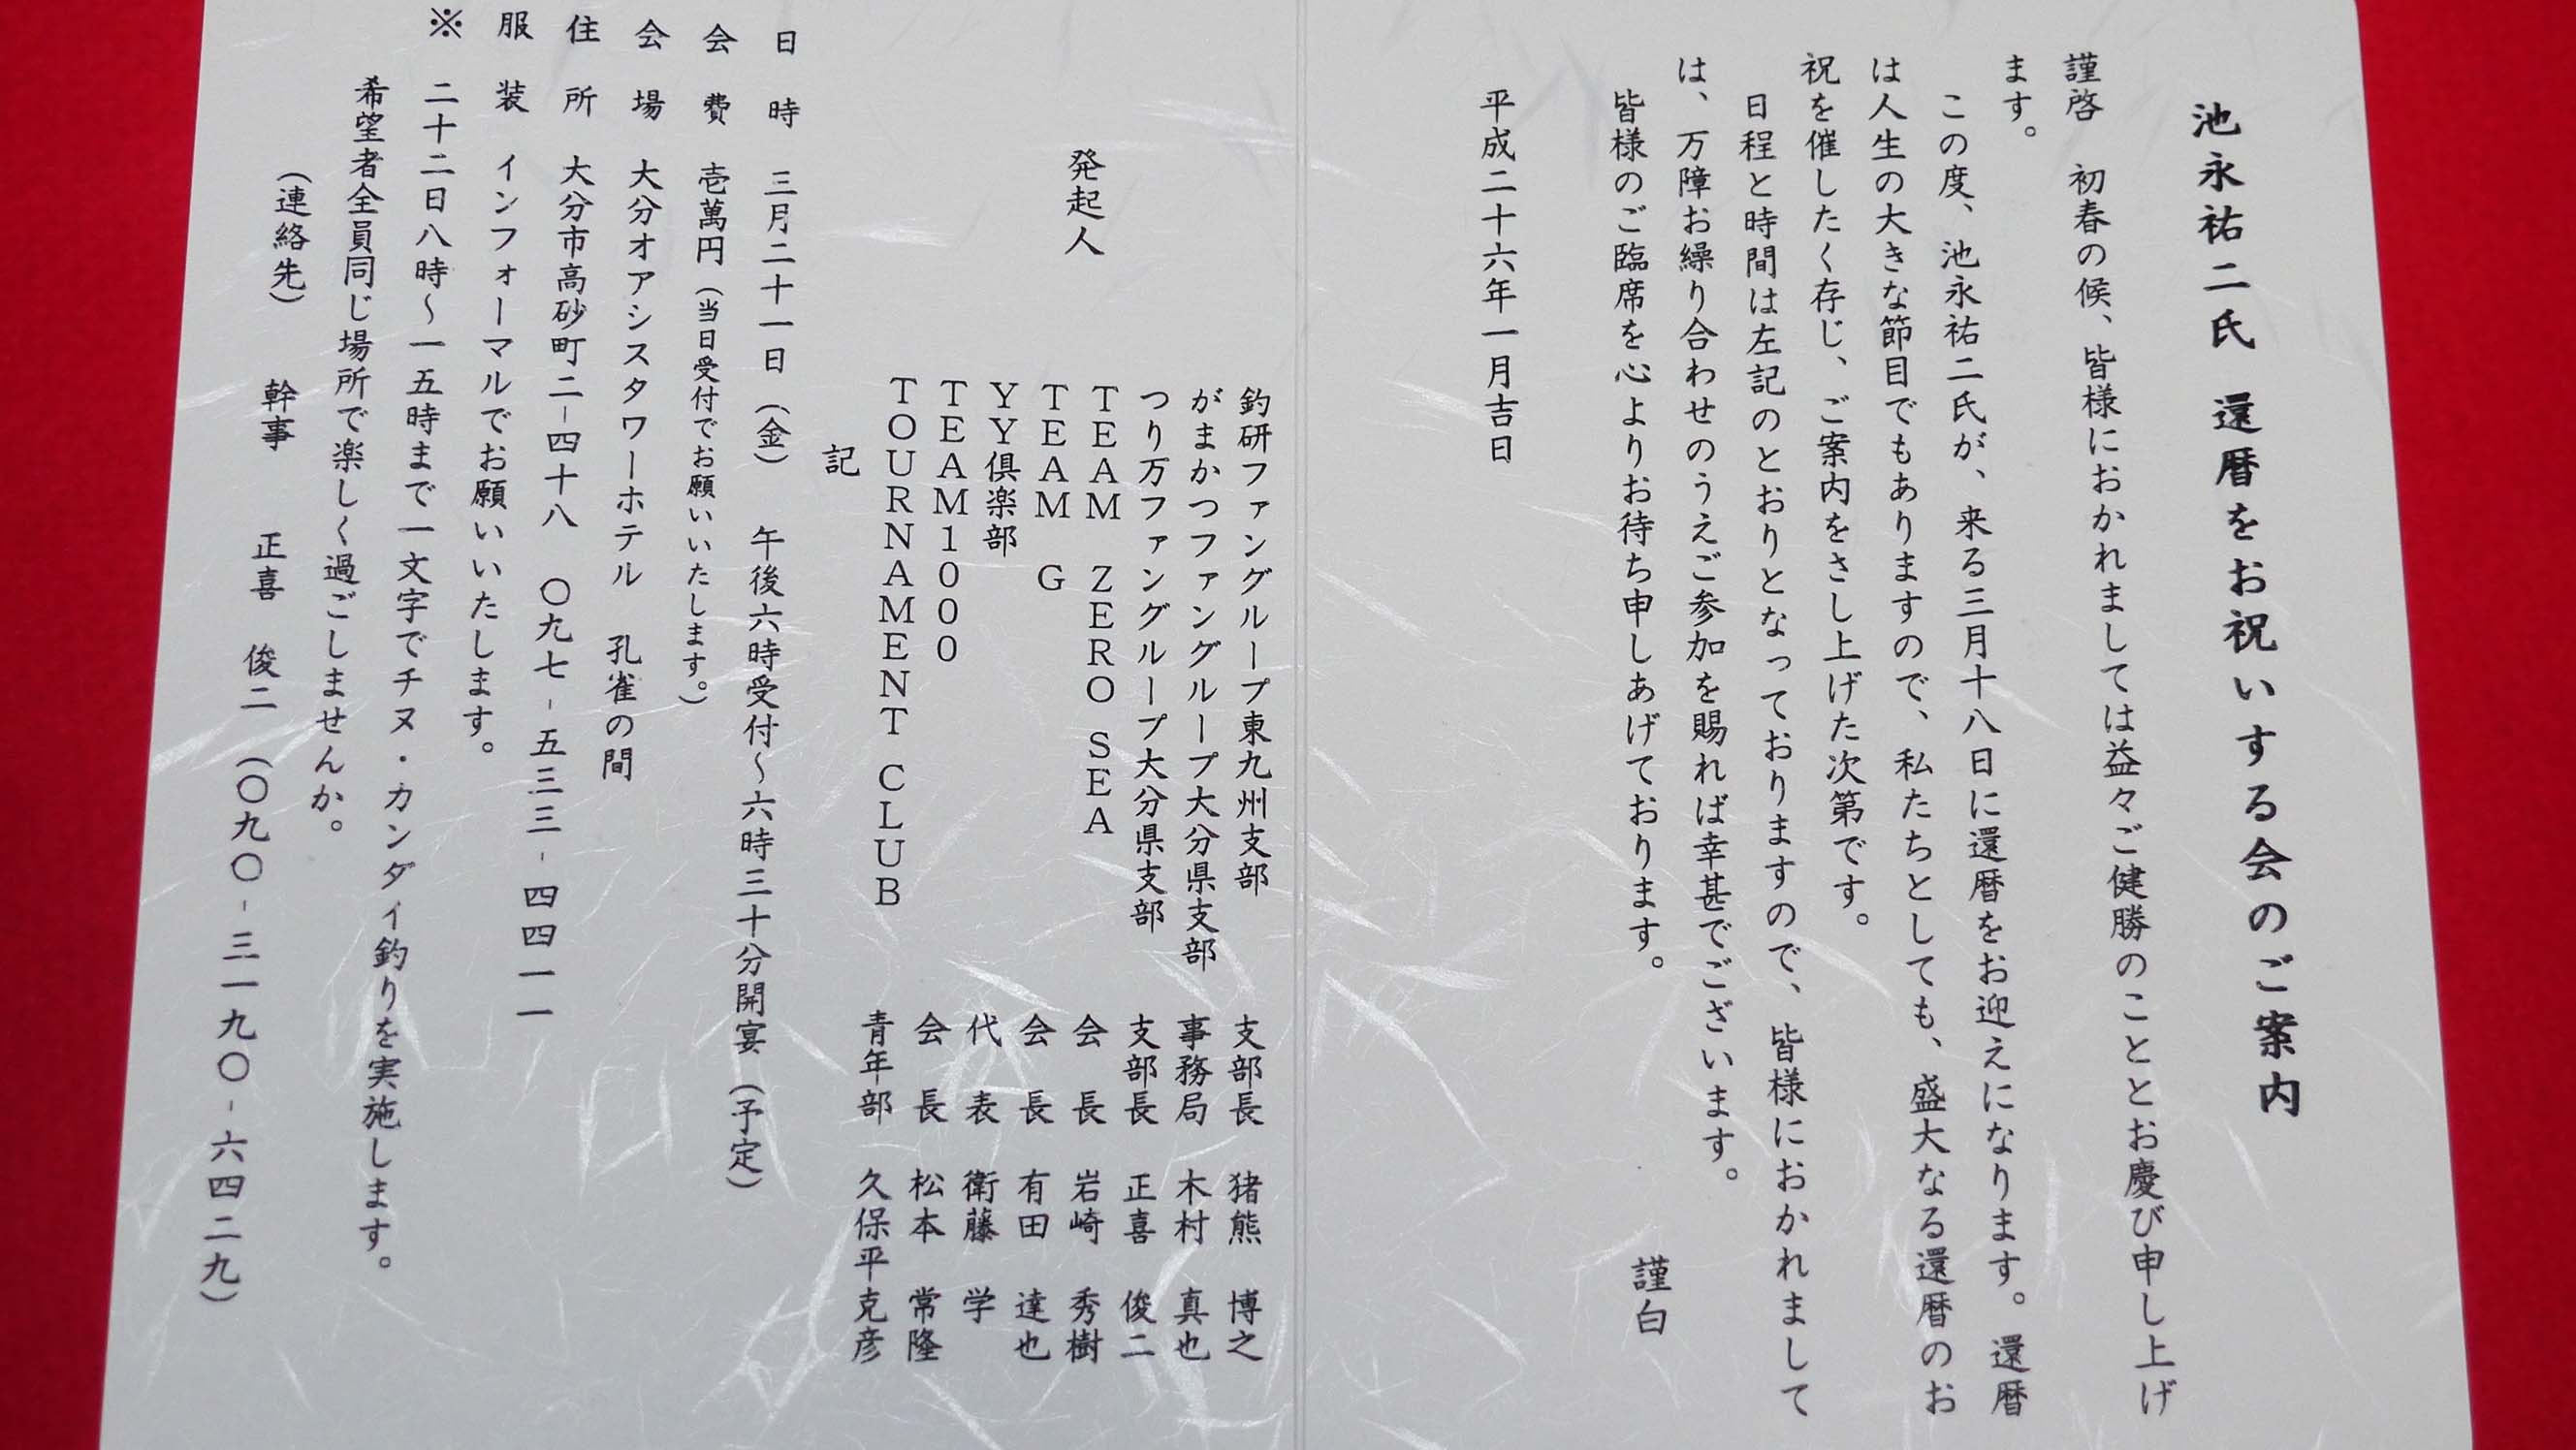 池永祐二氏 還暦をお祝いする会のご案内
謹啓 初春の候、皆様におかれましては益々ご健勝のこととお慶び申し上げ
ます。
この度、池永祐二氏が、来る三月十八日に還暦をお迎えになります。還暦
は人生の大きな節目でもありますので、私たちとしても、盛大なる還暦のお
祝を催したく存じ、ご案内をさし上げた次第です。
日程と時間は左記のとおりとなっておりますので、皆様におかれまして
は、万障お繰り合わせのうえご参加を賜れば幸甚でございます。
皆様のご臨席を心よりお待ち申しあげております。
謹白
平成二十六年一月吉日
発起人
釣研ファングループ東九州支部 支部長 猪熊 博之
がまかつファングループ大分県支部 事務局 木村 真也
つり万ファングループ大分県支部 支部長 正喜 俊二
TEAM ZERO SEA 会長 岩崎 秀樹
TEAM G 会長 有田 達也
YY倶楽部 代表 衛藤 学
TEAM1000 会長 松本 常隆
TOURNAMENT CLUB 青年部 久保平克彦
記
日時 三月二十一日（金） 午後六時受付～六時三十分開宴（予定）
会費 壱萬円（当日受付でお願いいたします。）
会場 大分オアシスタワーホテル 孔雀の間
住所 大分市高砂町二-四十八 〇九七-五三三-四四一一
服装 インフォーマルでお願いいたします。
※ 二十二日八時～一五時まで一文字でチヌ・カンダイ釣りを実施します。
希望者全員同じ場所で楽しく過ごしませんか。
（連絡先） 幹事 正喜 俊二（〇九〇-三一九〇-六四二九）